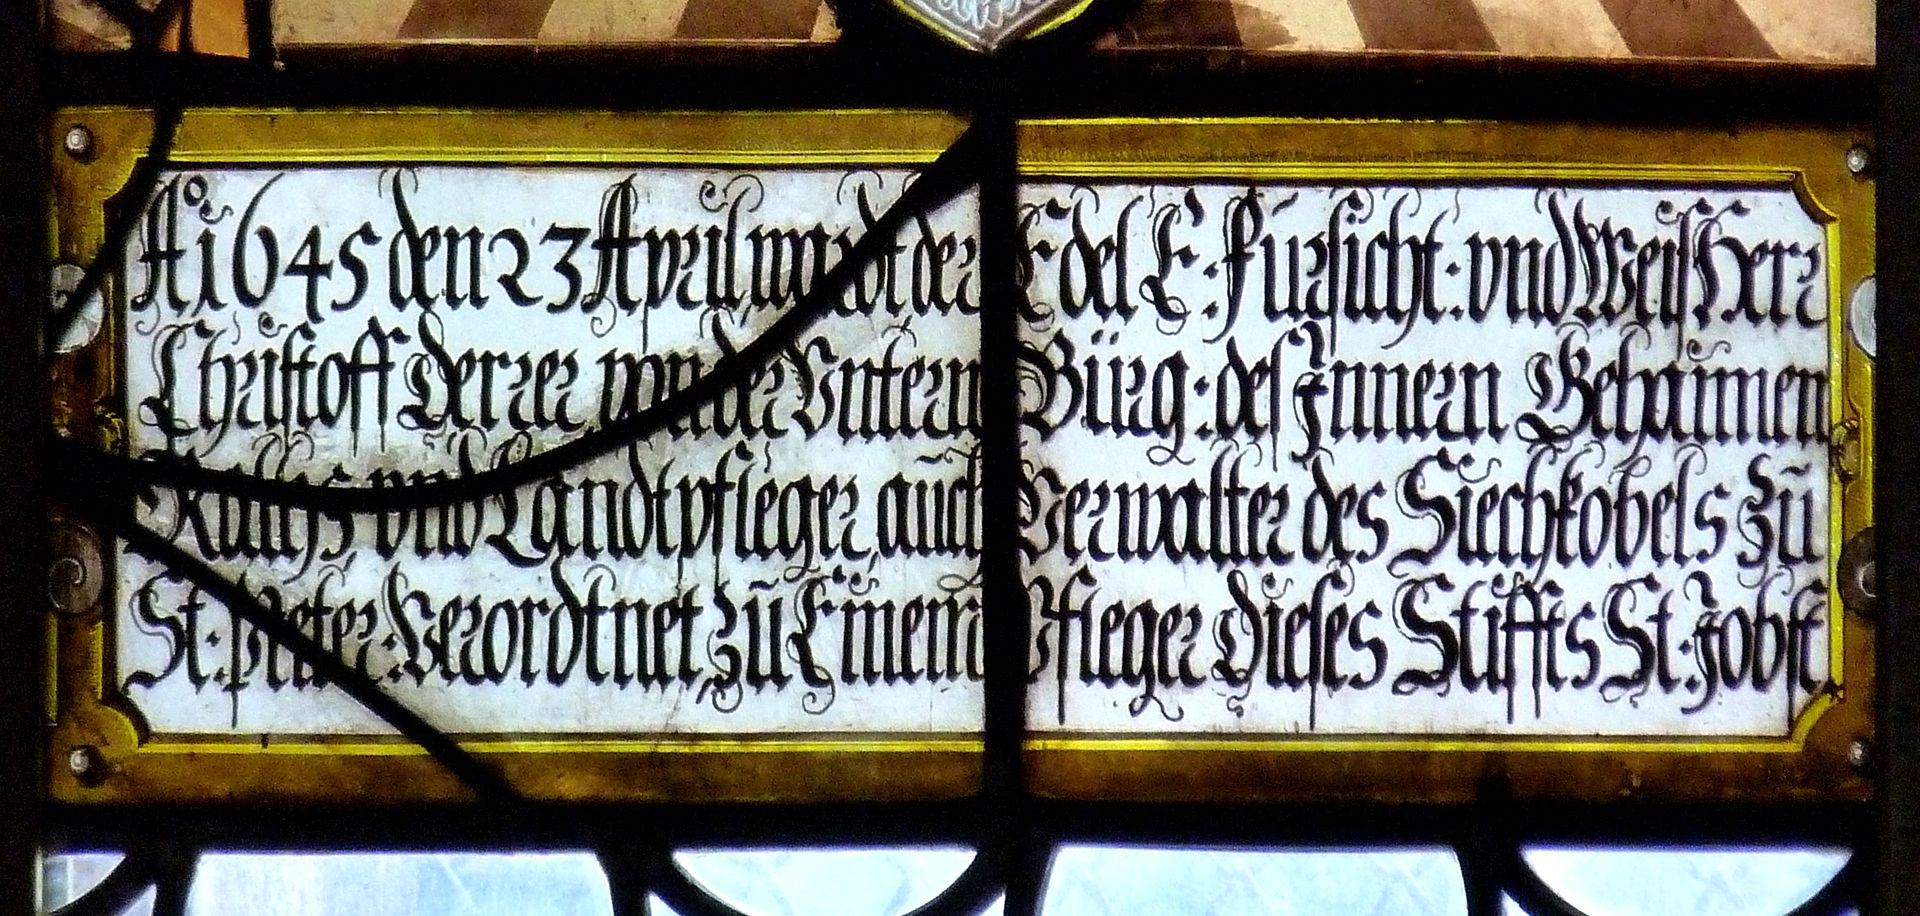 Aº 1645 den 23 April wardt der Edel E: Fürsicht: vnd Weiß Herr
Christoff Derrer von der Vntern Bürg: des Jnnern Gehaimen
Raths, vnd Landtpfleger, auch Verwalter des Siechkobels zu
St: Peter: Verordtnet zu Einem Pfleger Dieses Stiffts St: Jobst